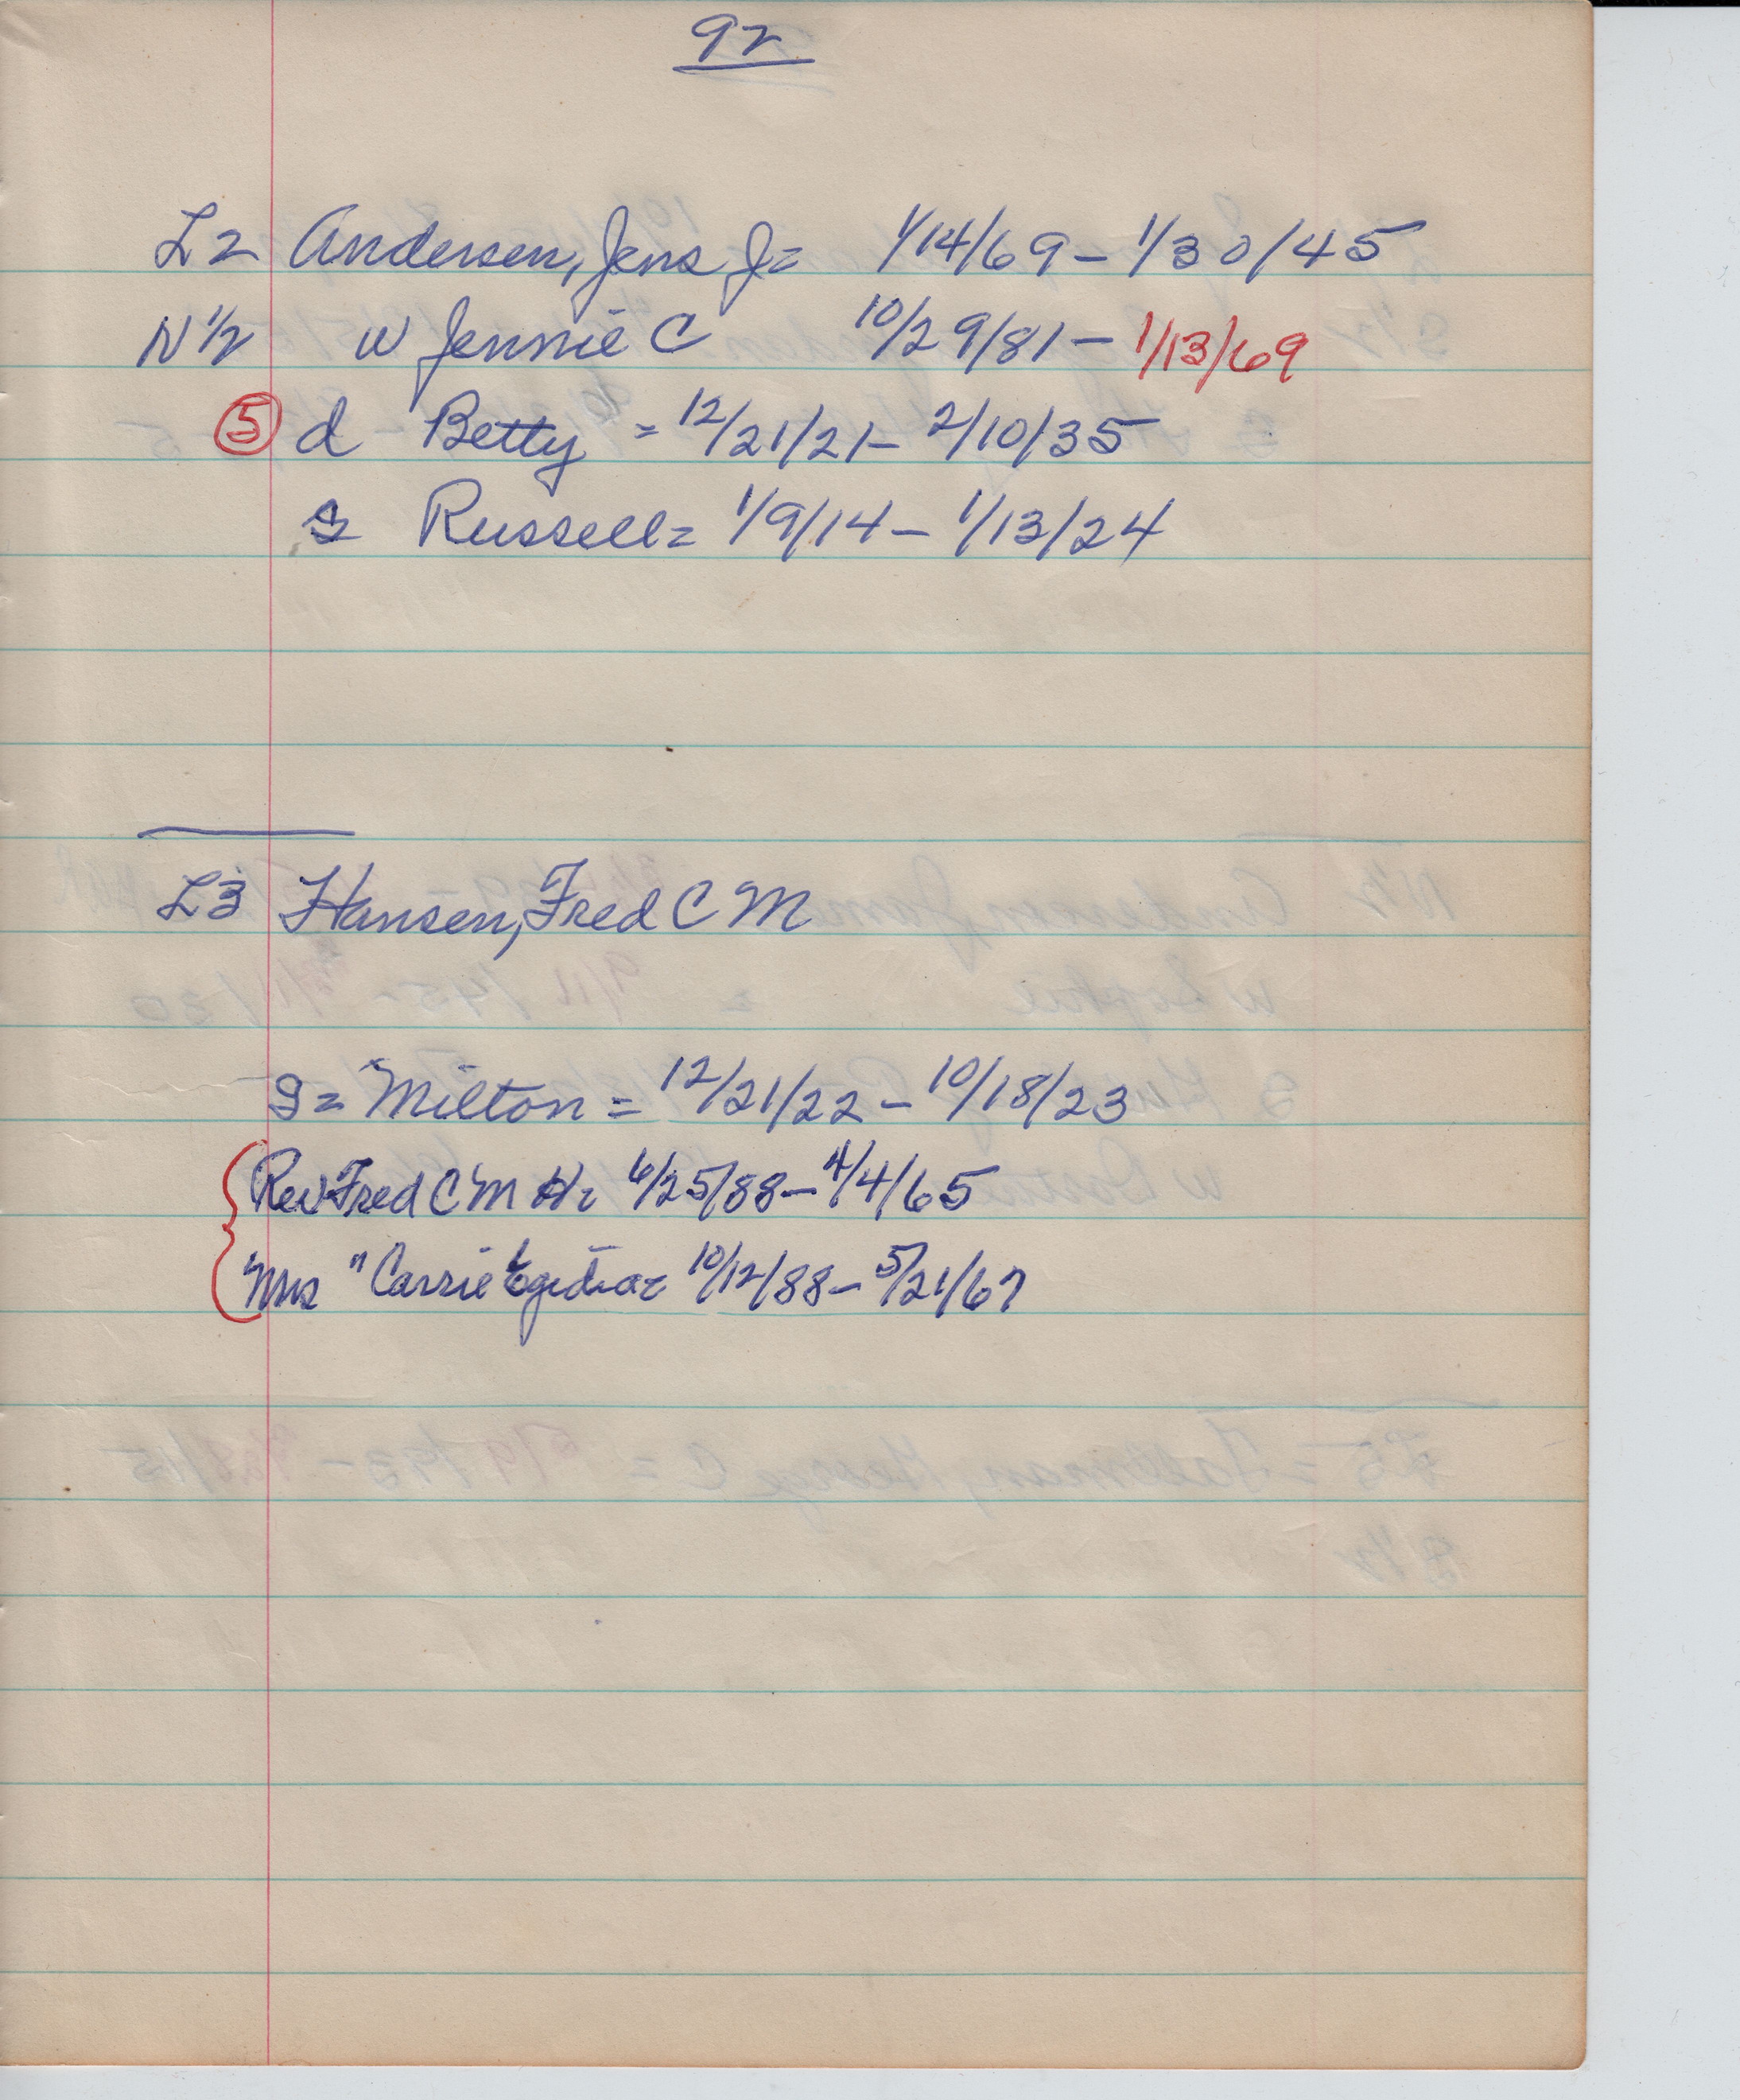 92
L2 Andersen, Jens J= 1/14/69 – 1/30/45
N 1/2 w Jennie C 10/29/81 – 1/13/69
5 d Betty = 12/21/21 – 2/10/35
s Russell = 1/9/14 – 1/13/24
L3 Hansen, Fred C M
s= Milton = 12/21/22 – 10/18/23
Rev Fred C M H= 6/25/88 – 4/4/65
Mrs " Carrie Egidia= 10/12/88 – 5/21/67